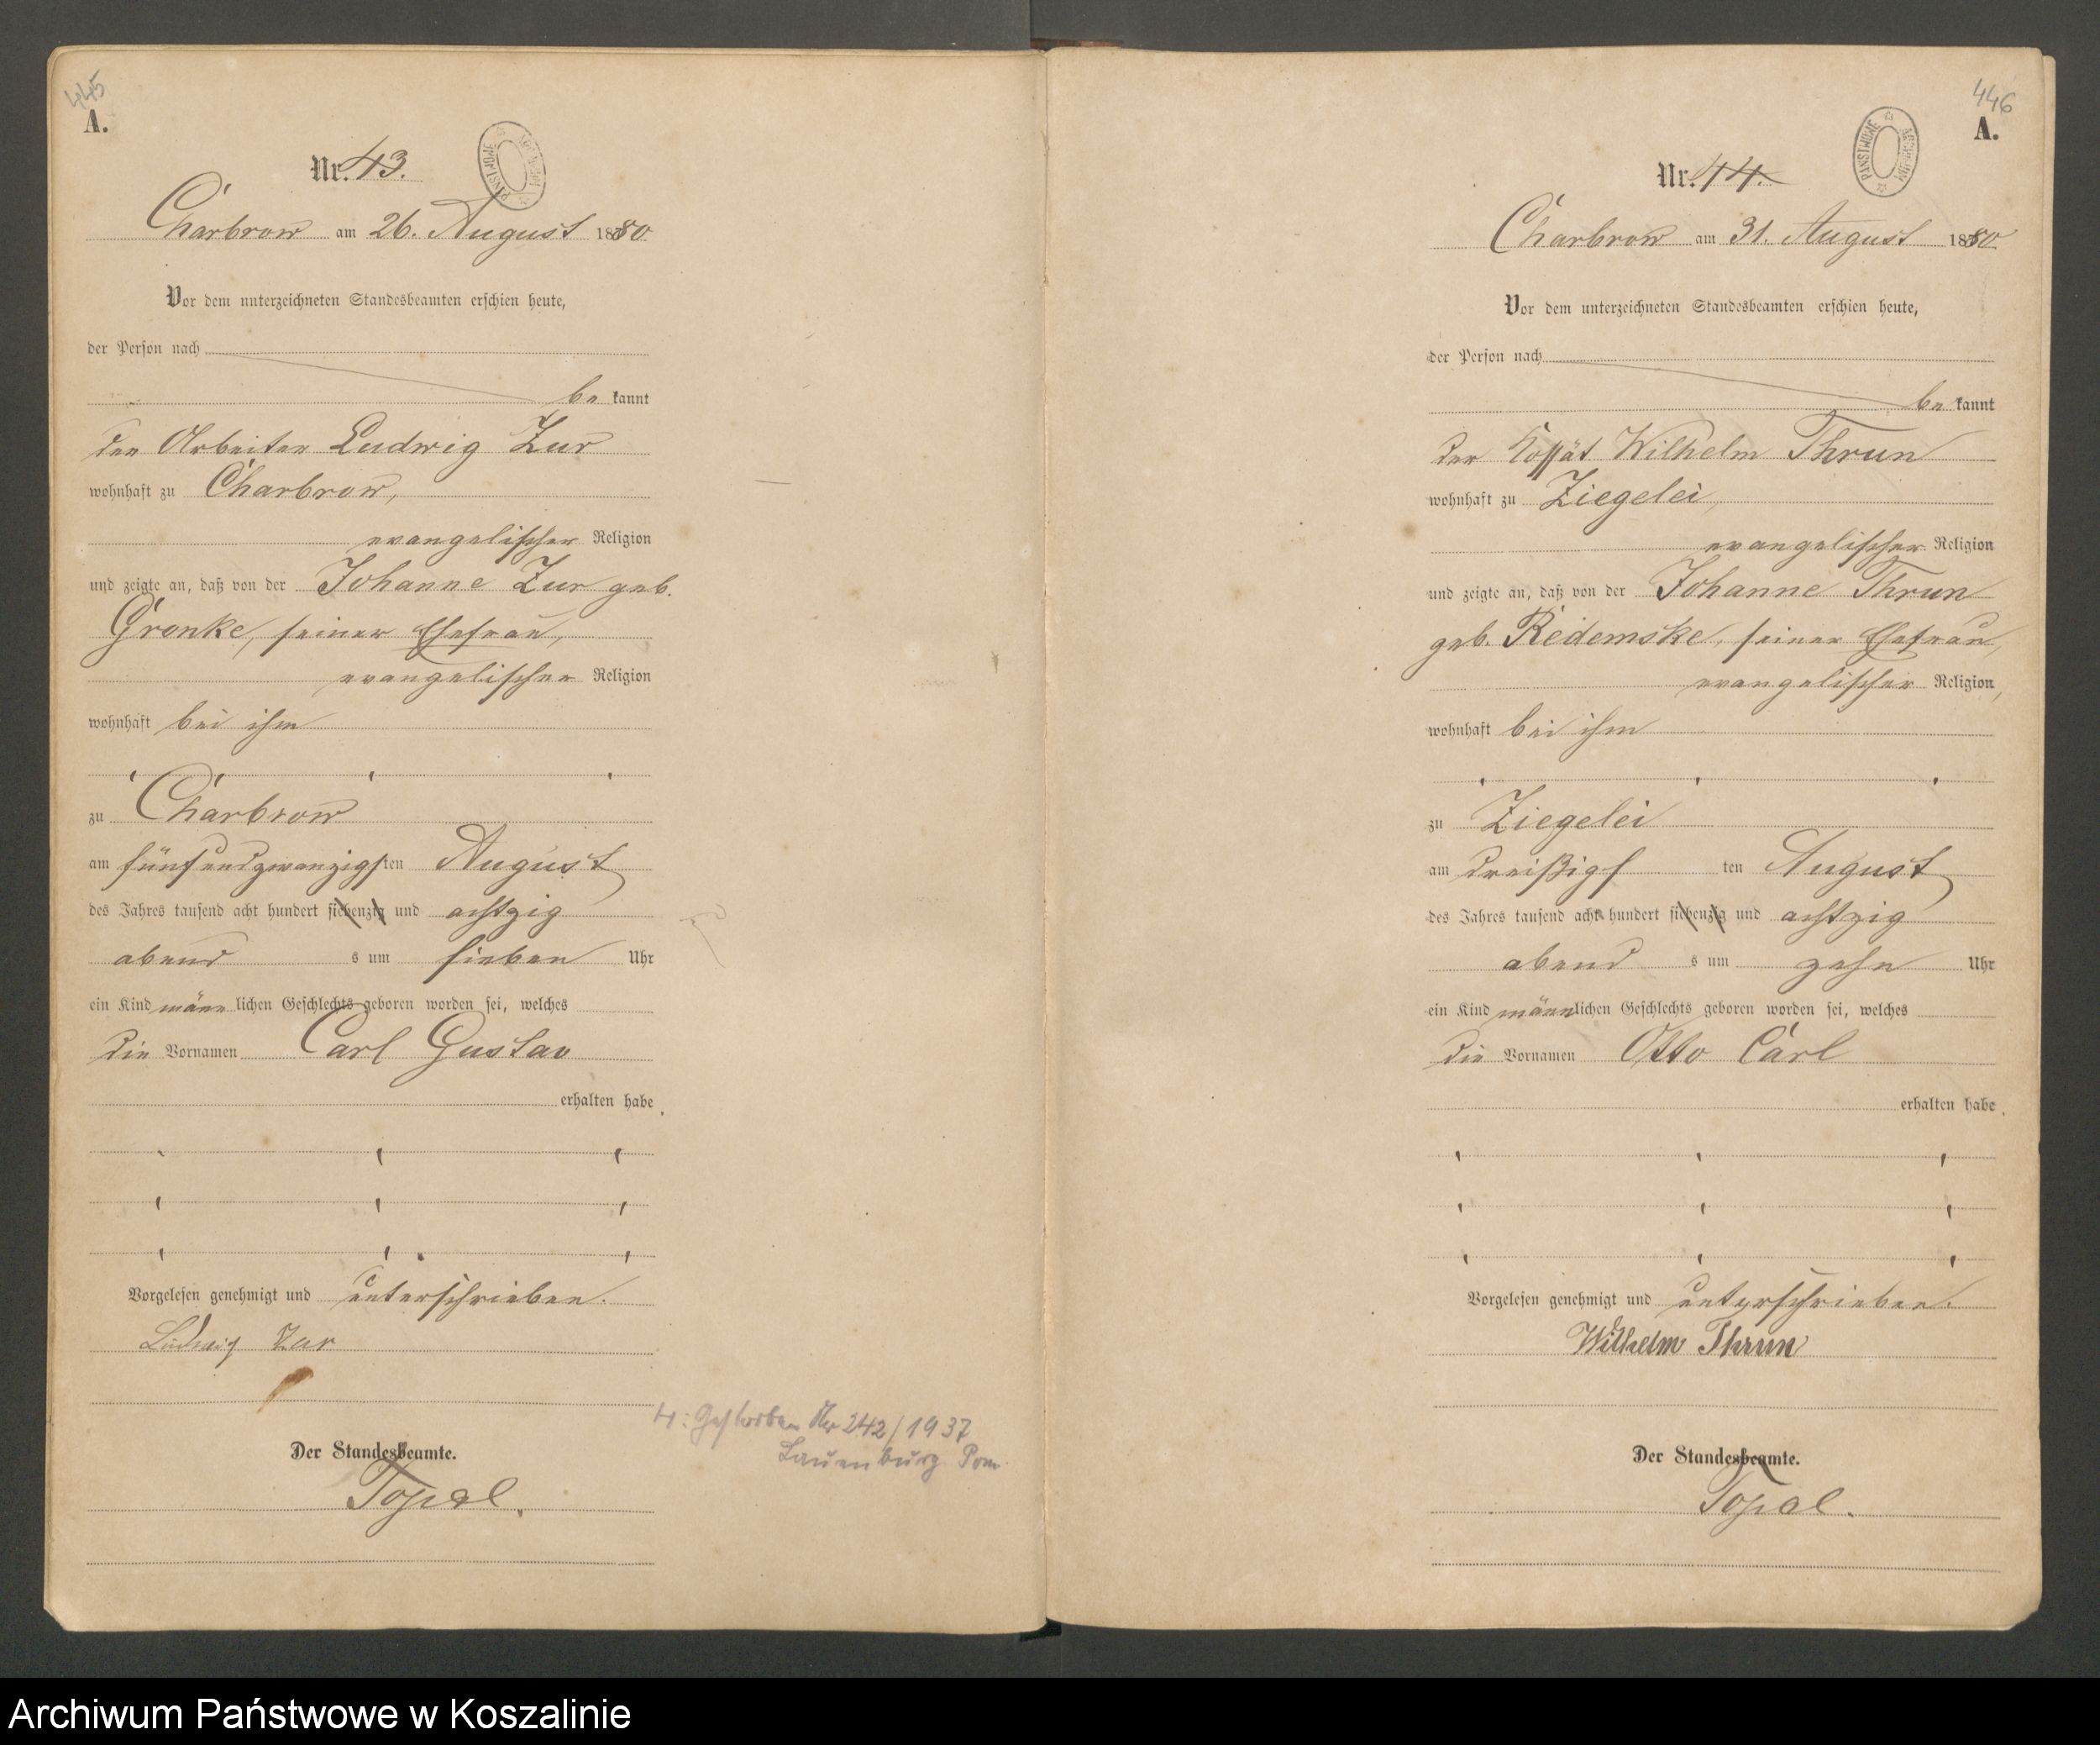 445
A.
Nr. 43.
PAŃSTWOWE ARCHIWUM
Charbrow am 26. August 1880
Vor dem unterzeichneten Standesbeamten erschien heute,
der Person nach
be kannt
der Arbeiter Ludwig Zur
wohnhaft zu Charbrow,
evangelischer Religion
und zeigte an, daß von der Johanne Zur geb.
Gronke, seiner Ehefrau,
evangelischer Religion
wohnhaft bei ihm
zu Charbrow
am fünfundzwanzigsten August
des Jahres tausend acht hundert siebenzig und achtzig
abend s um sieben Uhr
ein Kind männlichen Geschlechts geboren worden sei, welches
die Vornamen Carl Gustav
erhalten habe.
Vorgelesen genehmigt und unterschrieben.
Ludwig Zur
Der Standesbeamte.
Topel.
H: Gestorben Nr 242/1937
Lauenburg Pom
446
A.
Nr. 44.
PAŃSTWOWE ARCHIWUM
Charbrow am 31. August 1880
Vor dem unterzeichneten Standesbeamten erschien heute,
der Person nach
be kannt
der Kossät Wilhelm Thrun
wohnhaft zu Ziegelei,
evangelischer Religion
und zeigte an, daß von der Johanne Thrun
geb. Redemske, seiner Ehefrau,
evangelischer Religion,
wohnhaft bei ihm
zu Ziegelei
am dreißigsten August
des Jahres tausend acht hundert siebenzig und achtzig
abend s um zehn Uhr
ein Kind männlichen Geschlechts geboren worden sei, welches
die Vornamen Otto Carl
erhalten habe.
Vorgelesen genehmigt und unterschrieben.
Wilhelm Thrun
Der Standesbeamte.
Topel.
Archiwum Państwowe w Koszalinie